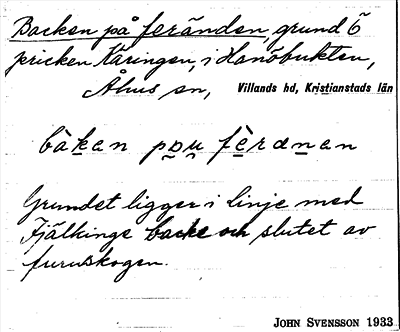 Backen på feränden, grund Ö
pricken Käringen, i Hanöbukten,
Åhus sn, Villands hd, Kristianstads län
bàkan pøu fèrdnan
Grundet ligger i linje med
Fjälkinge backe och slutet av
furuskogen.
JOHN SVENSSON 1933